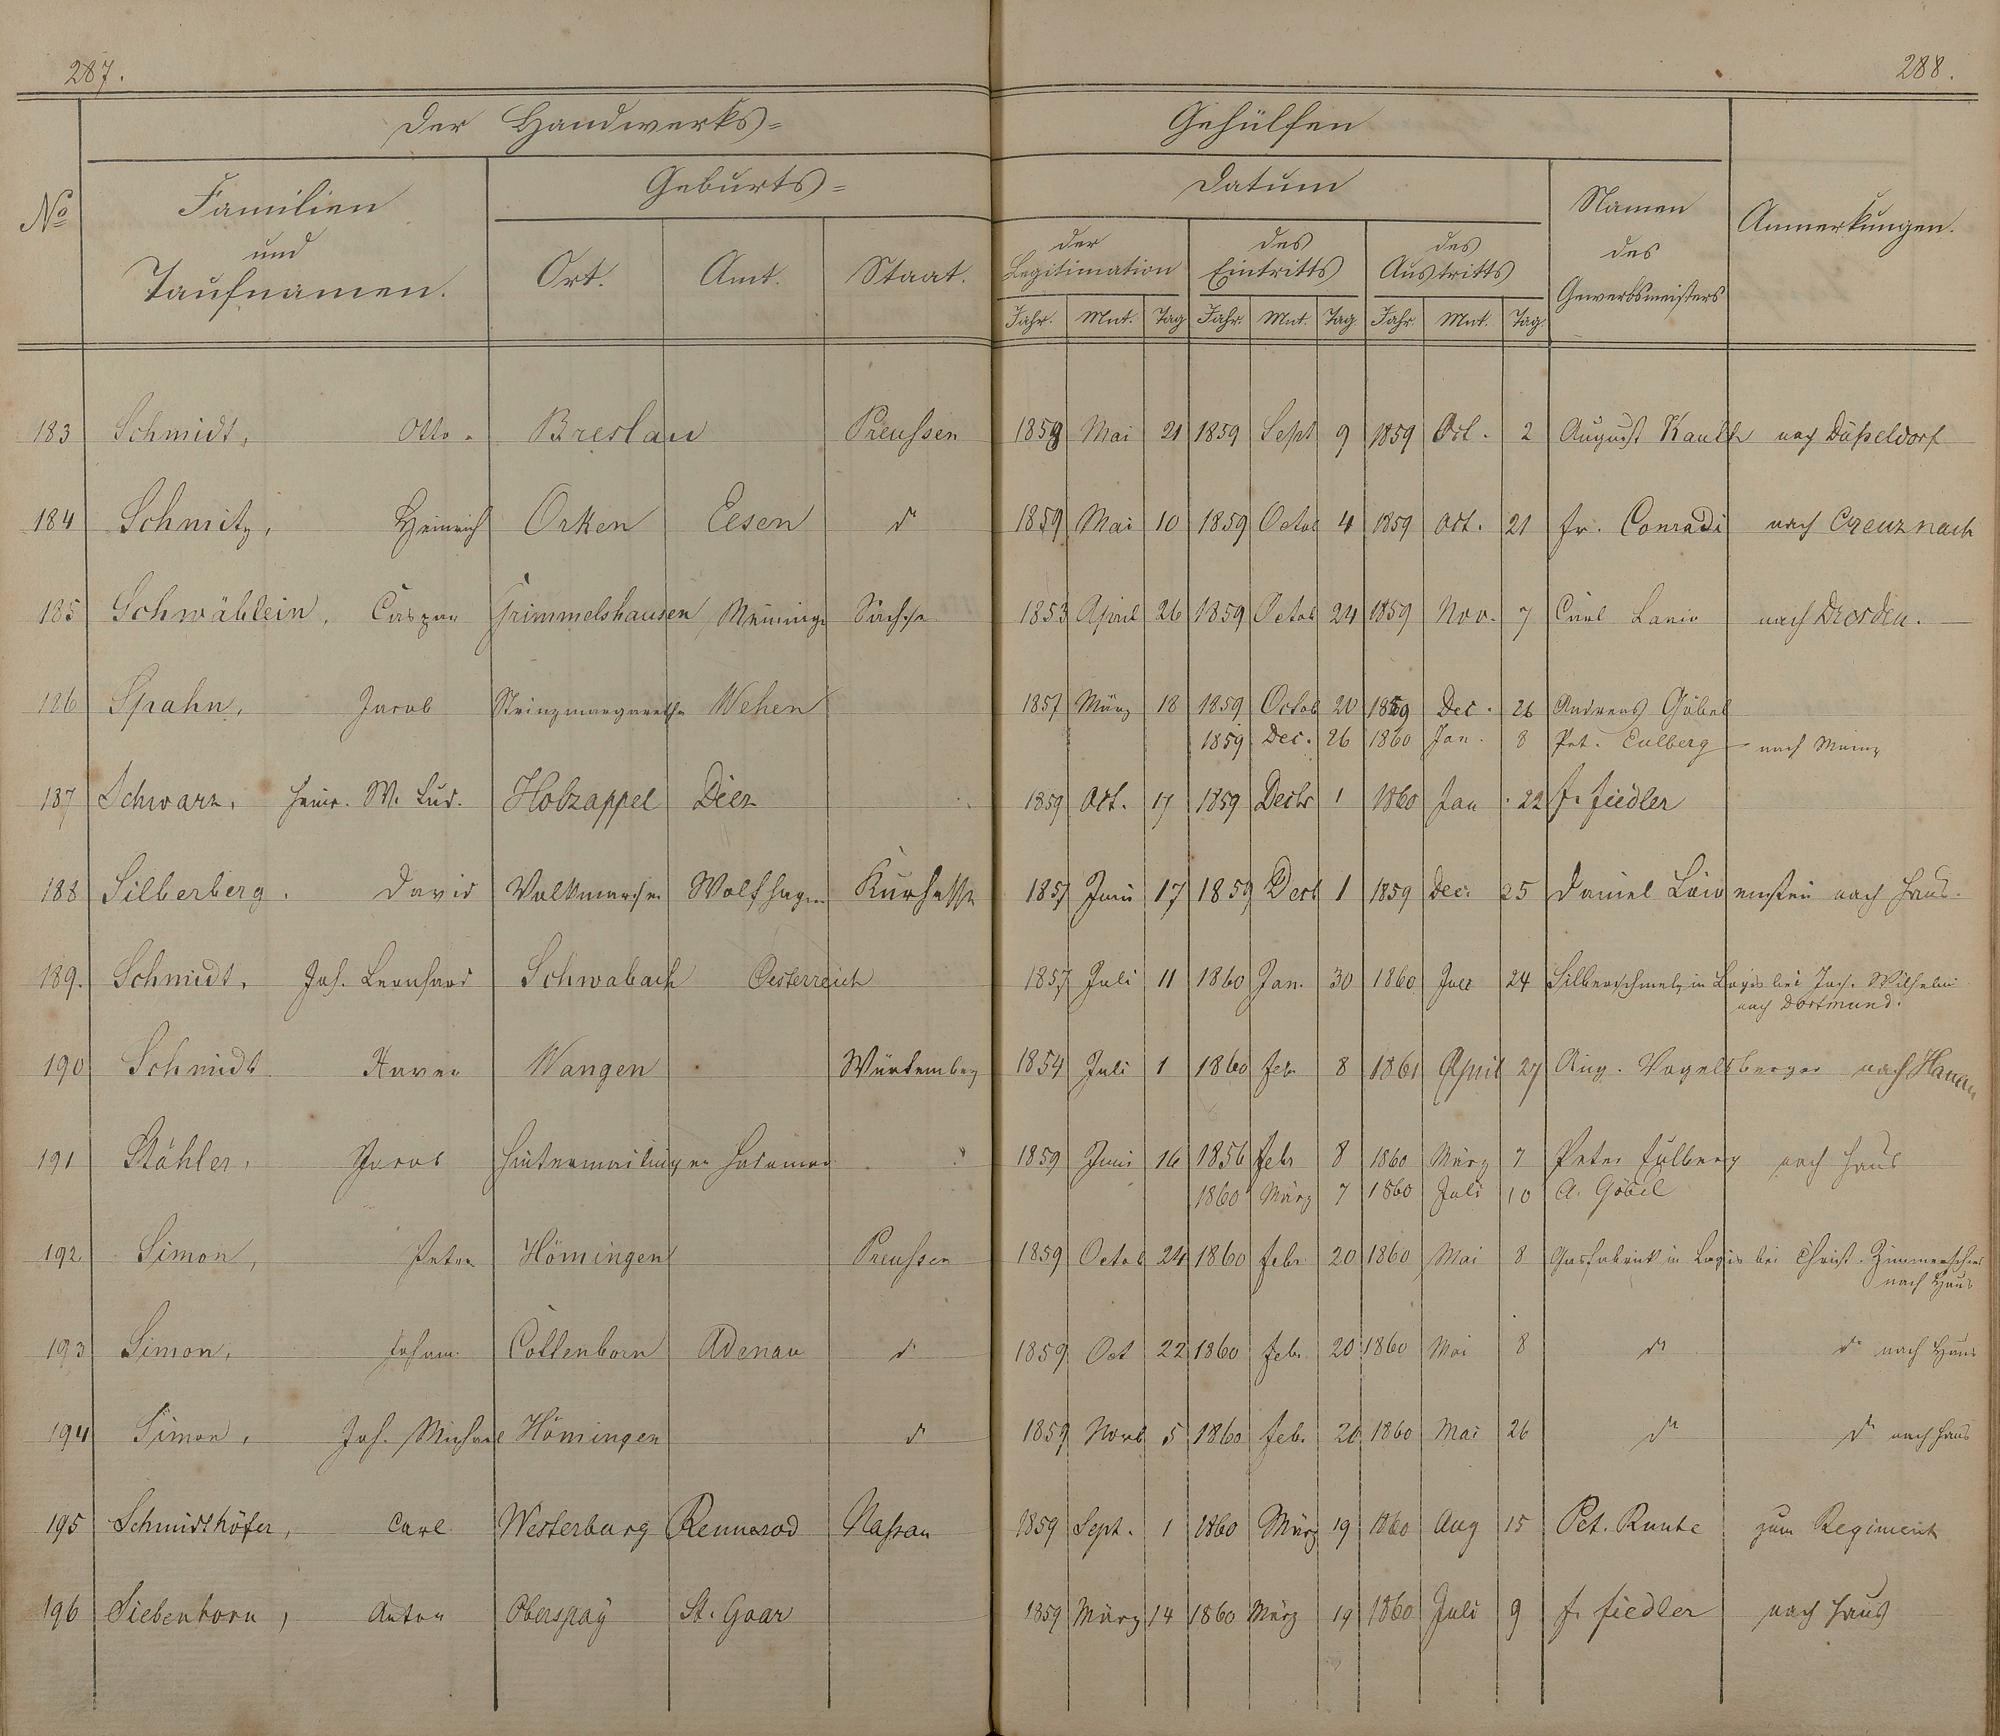 287.
288.
Der Handwerks= Gehülfen
No
Familien und Taufnamen.
Geburts=
Ort. Amt. Staat.
Datum
der Legitimation
des Eintritts
des Austritts
Jahr. Mnt. Tag Jahr. Mnt. Tag. Jahr. Mnt. Tag.
Namen des Gewerbsmeisters
Anmerkungen.
183 Schmidt, Otto. Breslau Preussen 1859 Mai 21 1859 Sept 9 1859 Oct. 2 August nach Düsseldorf
184 Schmitz, Heinrich Orken Eesen do 1859 Mai 10 1859 Octob 4 1859 Oct. 21 Fr. Conradi nach Creuznach
185 Schwäblein, Caspar Grimmelshausen Meininge Sachse 1853 April 26 1859 Octob 24 1859 Nov. 7 Carl Lanio nach Dresden.
186 Spahn, Jacob Strinzmargareth Wehen 1857 März 18 1859 Octob 20 1859 Dec. 26 Andreas Göbel
1859 Dec. 26 1860 Jan. 8 Pet. Eulberg nach Mainz
187 Schwarz, Heinr. W. Lud. Holzappel Diez 1859 Oct. 17 1859 Decbr 1 1860 Jan. 22 F. Fiedler
188 Silberberg. David Volkmarsen Wolfhagen Kurhessen 1857 Juni 17 1859 Decb 1 1859 Dec. 25 Daniel Löwenstein nach Haus.
189. Schmidt, Joh. Leonhard Schwabach Oesterreich 1857 Juli 11 1860 Jan. 30 1860 24 Silberschmelz in Logis bei Wilhelmi
nach Dortmund.
190 Schmidt Xaver Wangen Würtemberg 1854 Juli 1 1860 Feb. 8 1861 April 27 Aug. Vogelsberger nach Hanau
191 Stähler, Jacob Hintermeilingen Hadamar 1859 Juni 16 1856 Febr 8 1860 März 7 Peter Eulberg nach Haus
1860 März 7 1860 Juli 10 A. Göbel
192 Simon, Peter Hömingen Preussen 1859 Octob 24 1860 Febr. 20 1860 Mai 8 Gasfabrick in Logis bei Christ.
nach Haus
193 Simon, Johann Cottenborn Adenau do 1859 Oct 22 1860 Feb. 20 1860 Mai 8 do do nach Haus
194 Simon, Joh. Michael Hömingen do 1859 Novb 5 1860 Feb. 20 1860 Mai 26 do do nach Haus
195 Schmidthöfer, Carl Westerburg Rennerod Nassau 1859 Sept. 1 1860 März 19 1860 Aug 15 Pet. Runte zum Regiment
196 Siebenborn, Anton Oberspaÿ St. Goar 1859 März 14 1860 März 19 1860 Juli 9 F. Fiedler nach Haus